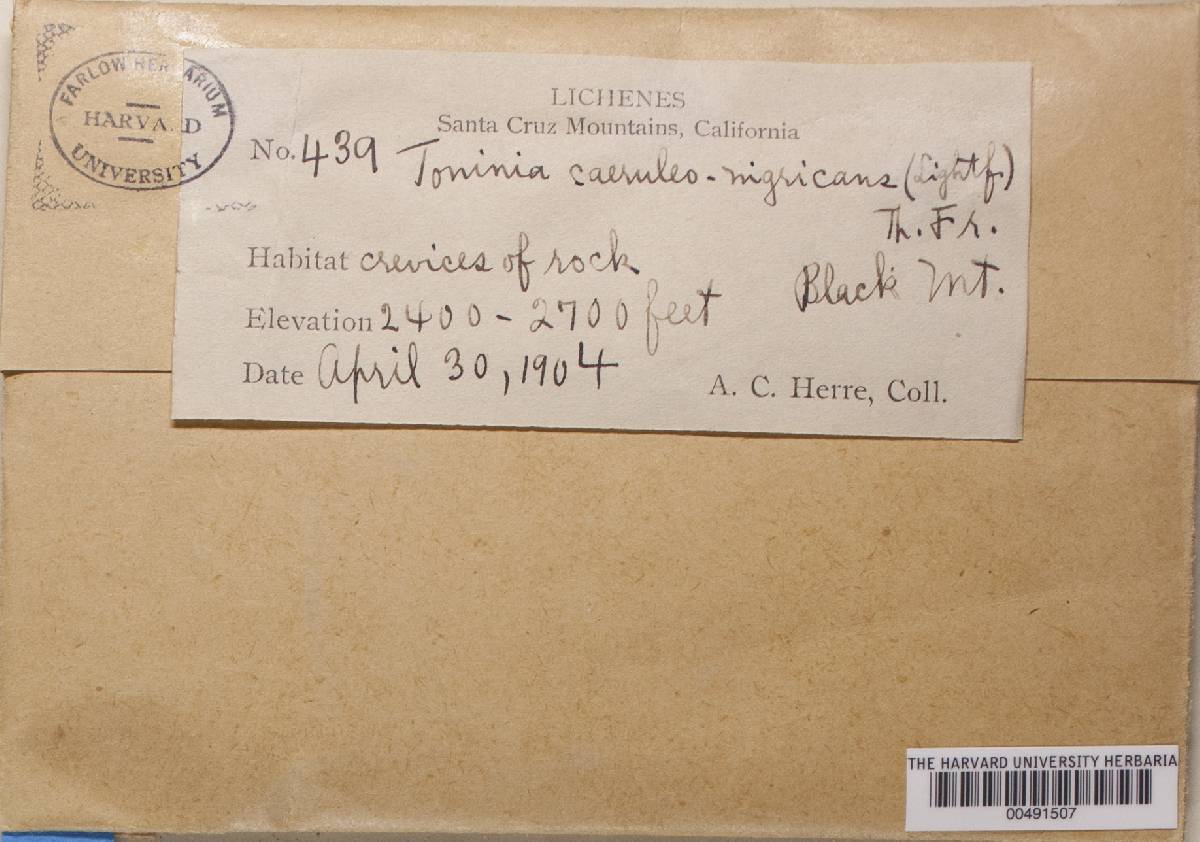 FARLOW HERBARIUM
HARVARD
UNIVERSITY
LICHENES
Santa Cruz Mountains, California
No. 439 Toninia caeruleo-nigricans (Lightf.)
Th. Fr.
Habitat crevices of rock
Black Mt.
Elevation 2400 - 2700 feet
Date April 30, 1904
A. C. Herre, Coll.
THE HARVARD UNIVERSITY HERBARIA
00491507